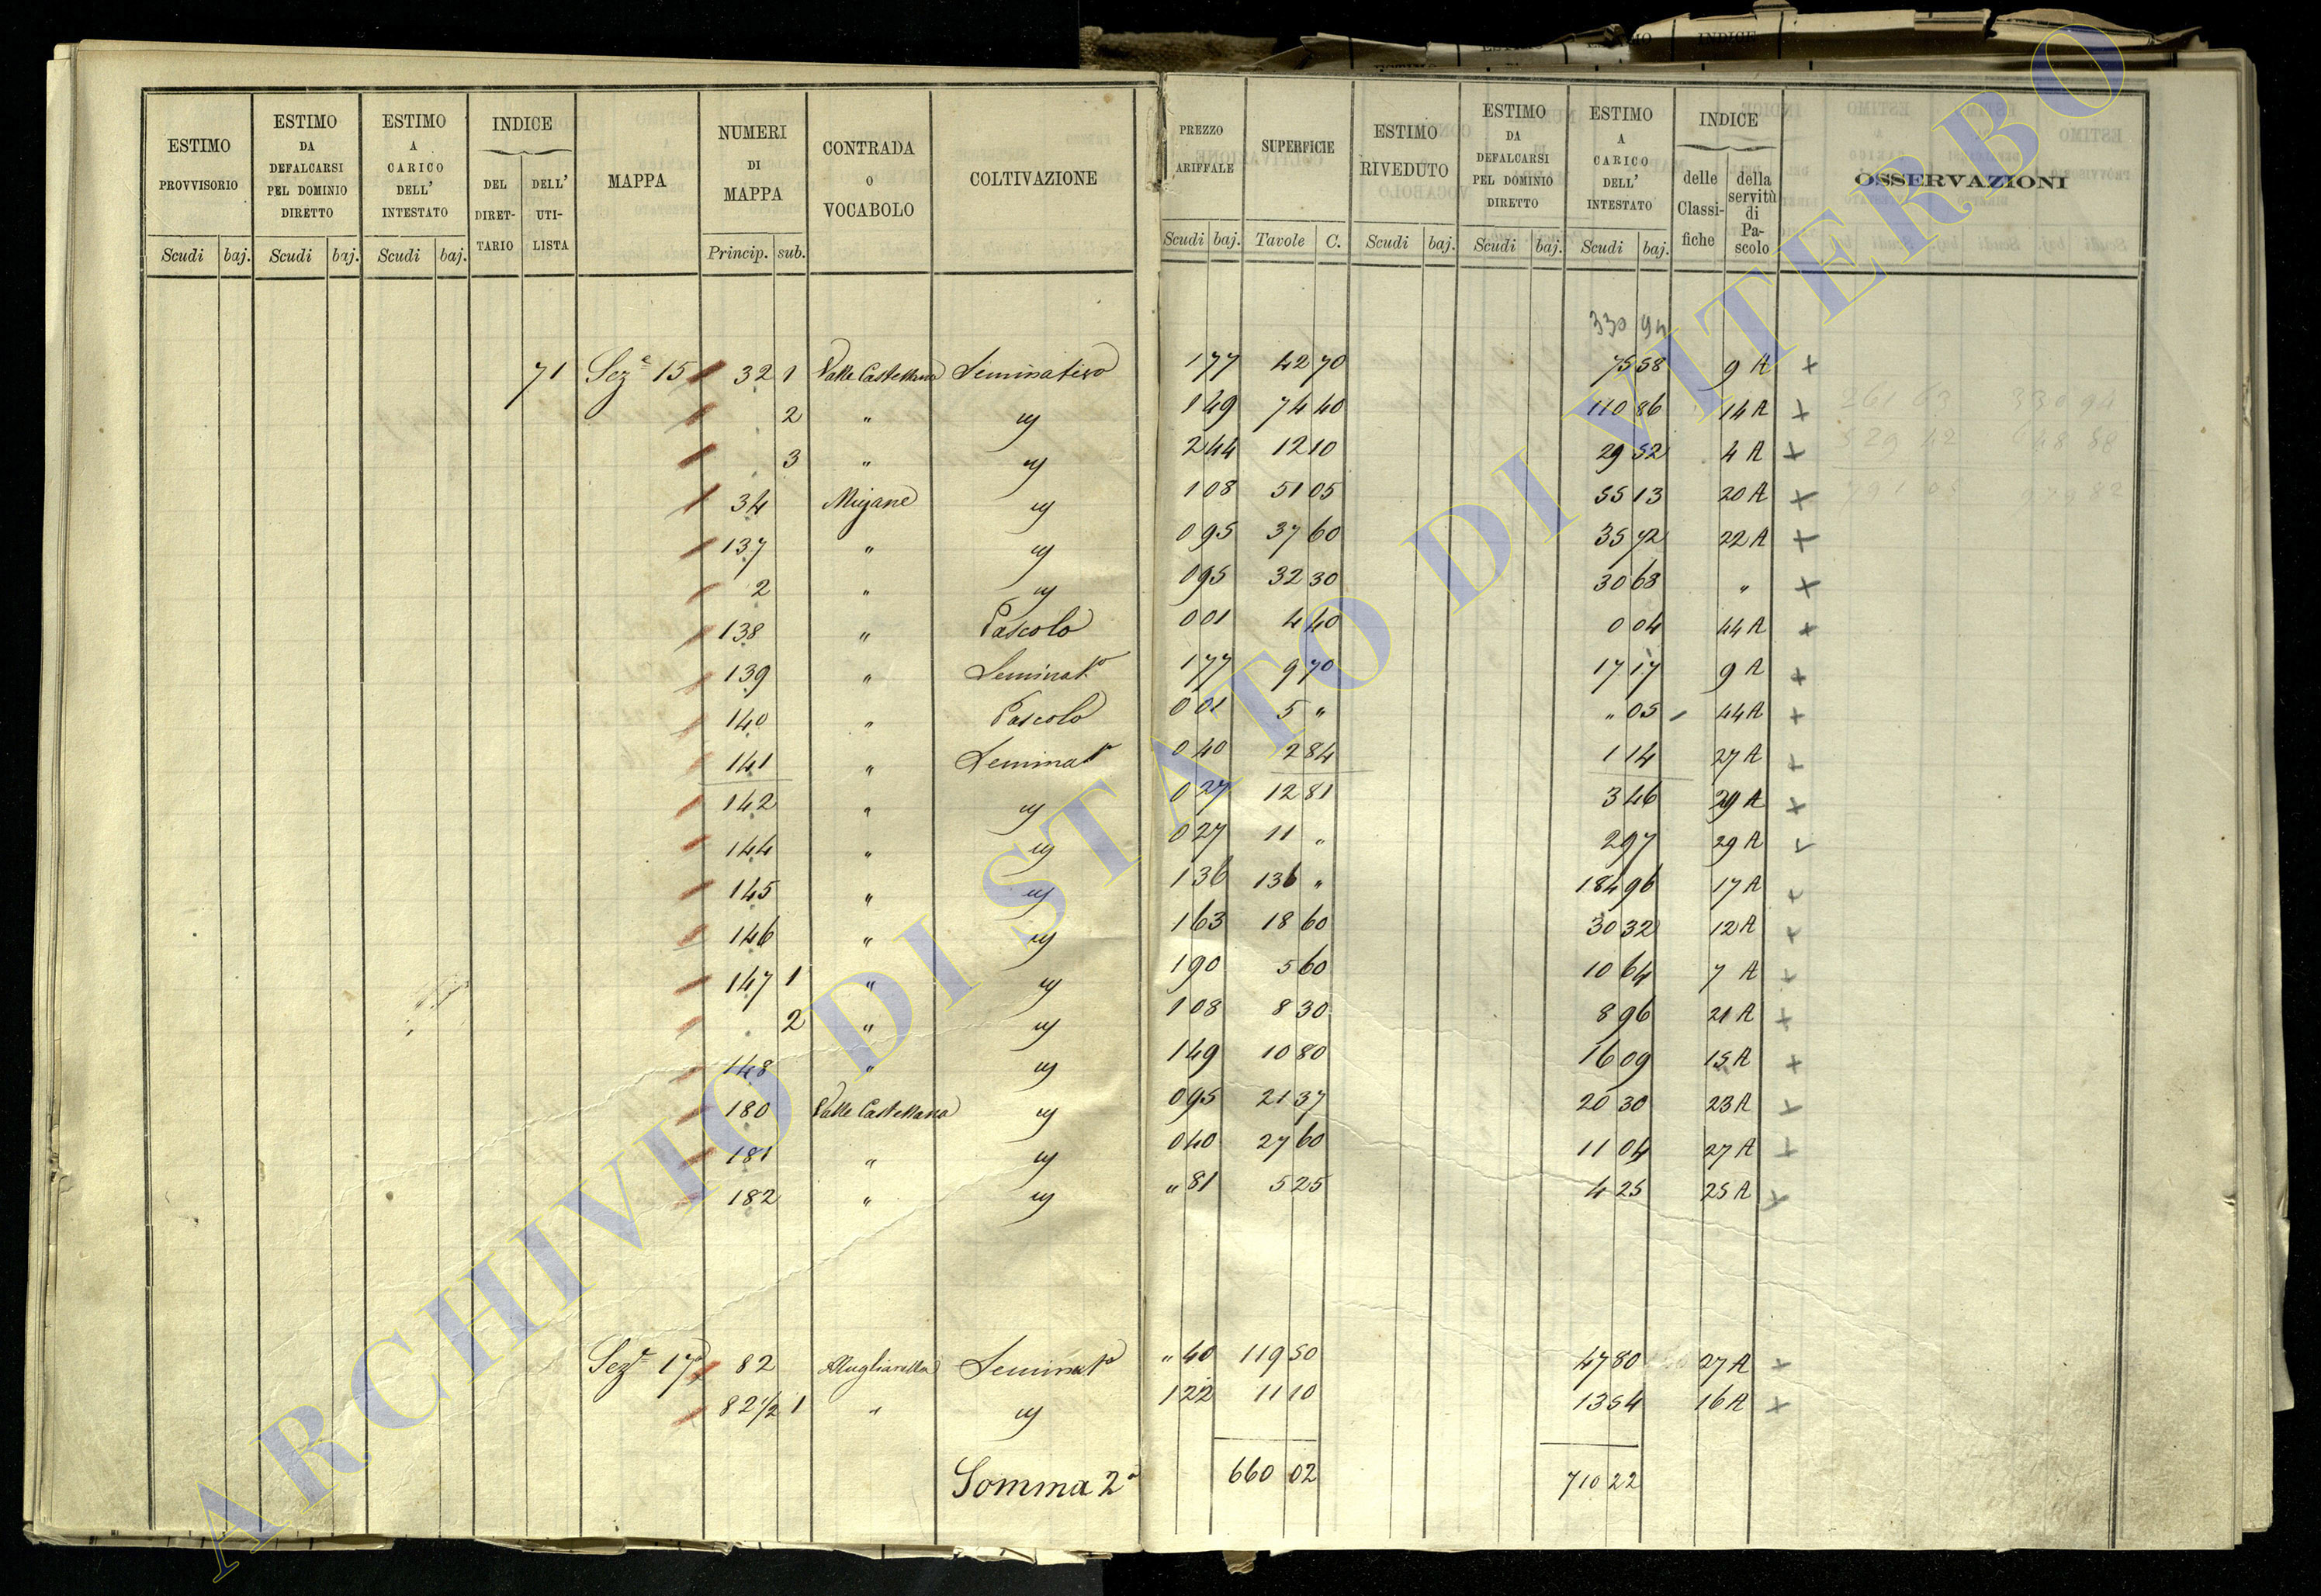 ESTIMO PROVVISORIO
ESTIMO DA DEFALCARSI PEL DOMINIO DIRETTO
ESTIMO A CARICO DELL' INTESTATO
INDICE
DEL DIRET- TARIO
DELL' UTI- LISTA
MAPPA
NUMERI DI MAPPA
CONTRADA O VOCABOLO
COLTIVAZIONE
PREZZO ARIFFALE
SUPERFICIE
ESTIMO RIVEDUTO
ESTIMO DA DEFALCARSI PEL DOMINIO DIRETTO
ESTIMO A CARICO DELL' INTESTATO
INDICE
delle Classi- fiche
della servitù di Pa- scolo
OSSERVAZIONI
Scudi baj. Scudi baj. Scudi baj. Princip. sub. Scudi baj. Tavole C. Scudi baj. Scudi baj. Scudi baj.
330 94
71 Sez.e 15 32 1 Valle Castellana Seminativo 1 77 42 70 75 58 9 A +
2 " " 1 49 74 40 110 86 14 A +
3 " " 2 44 12 10 29 52 4 A +
34 Mijane " 1 08 51 05 55 13 20 A +
137 " " 0 95 37 60 35 72 22 A +
2 " " 0 95 32 30 30 68 " +
138 " Pascolo 0 01 4 40 0 04 44 A +
139 " Seminato 1 77 9 70 17 17 9 A +
140 " Pascolo 0 01 5 " " 05 44 A +
141 " Seminato 0 40 2 84 1 14 27 A +
142 " " 0 27 12 81 3 46 29 A +
144 " " 0 27 11 " 2 97 29 A +
145 " " 1 36 136 " 184 96 17 A +
146 " " 1 63 18 60 30 32 12 A +
147 1 " " 1 90 5 60 10 64 7 A +
2 " " 1 08 8 30 8 96 21 A +
148 " " 1 49 10 80 16 09 15 A +
180 Valle Castellana " 0 95 21 37 20 30 23 A +
181 " " 0 40 27 60 11 04 27 A +
182 " " " 81 5 25 4 25 25 A +
Sez.e 17 82 Mugliarella Seminato " 40 119 50 47 80 27 A +
82 1/2 1 " " 1 22 11 10 13 54 16 A +
Somma 2a 660 02 710 22
ARCHIVIO DI STATO DI VITERBO